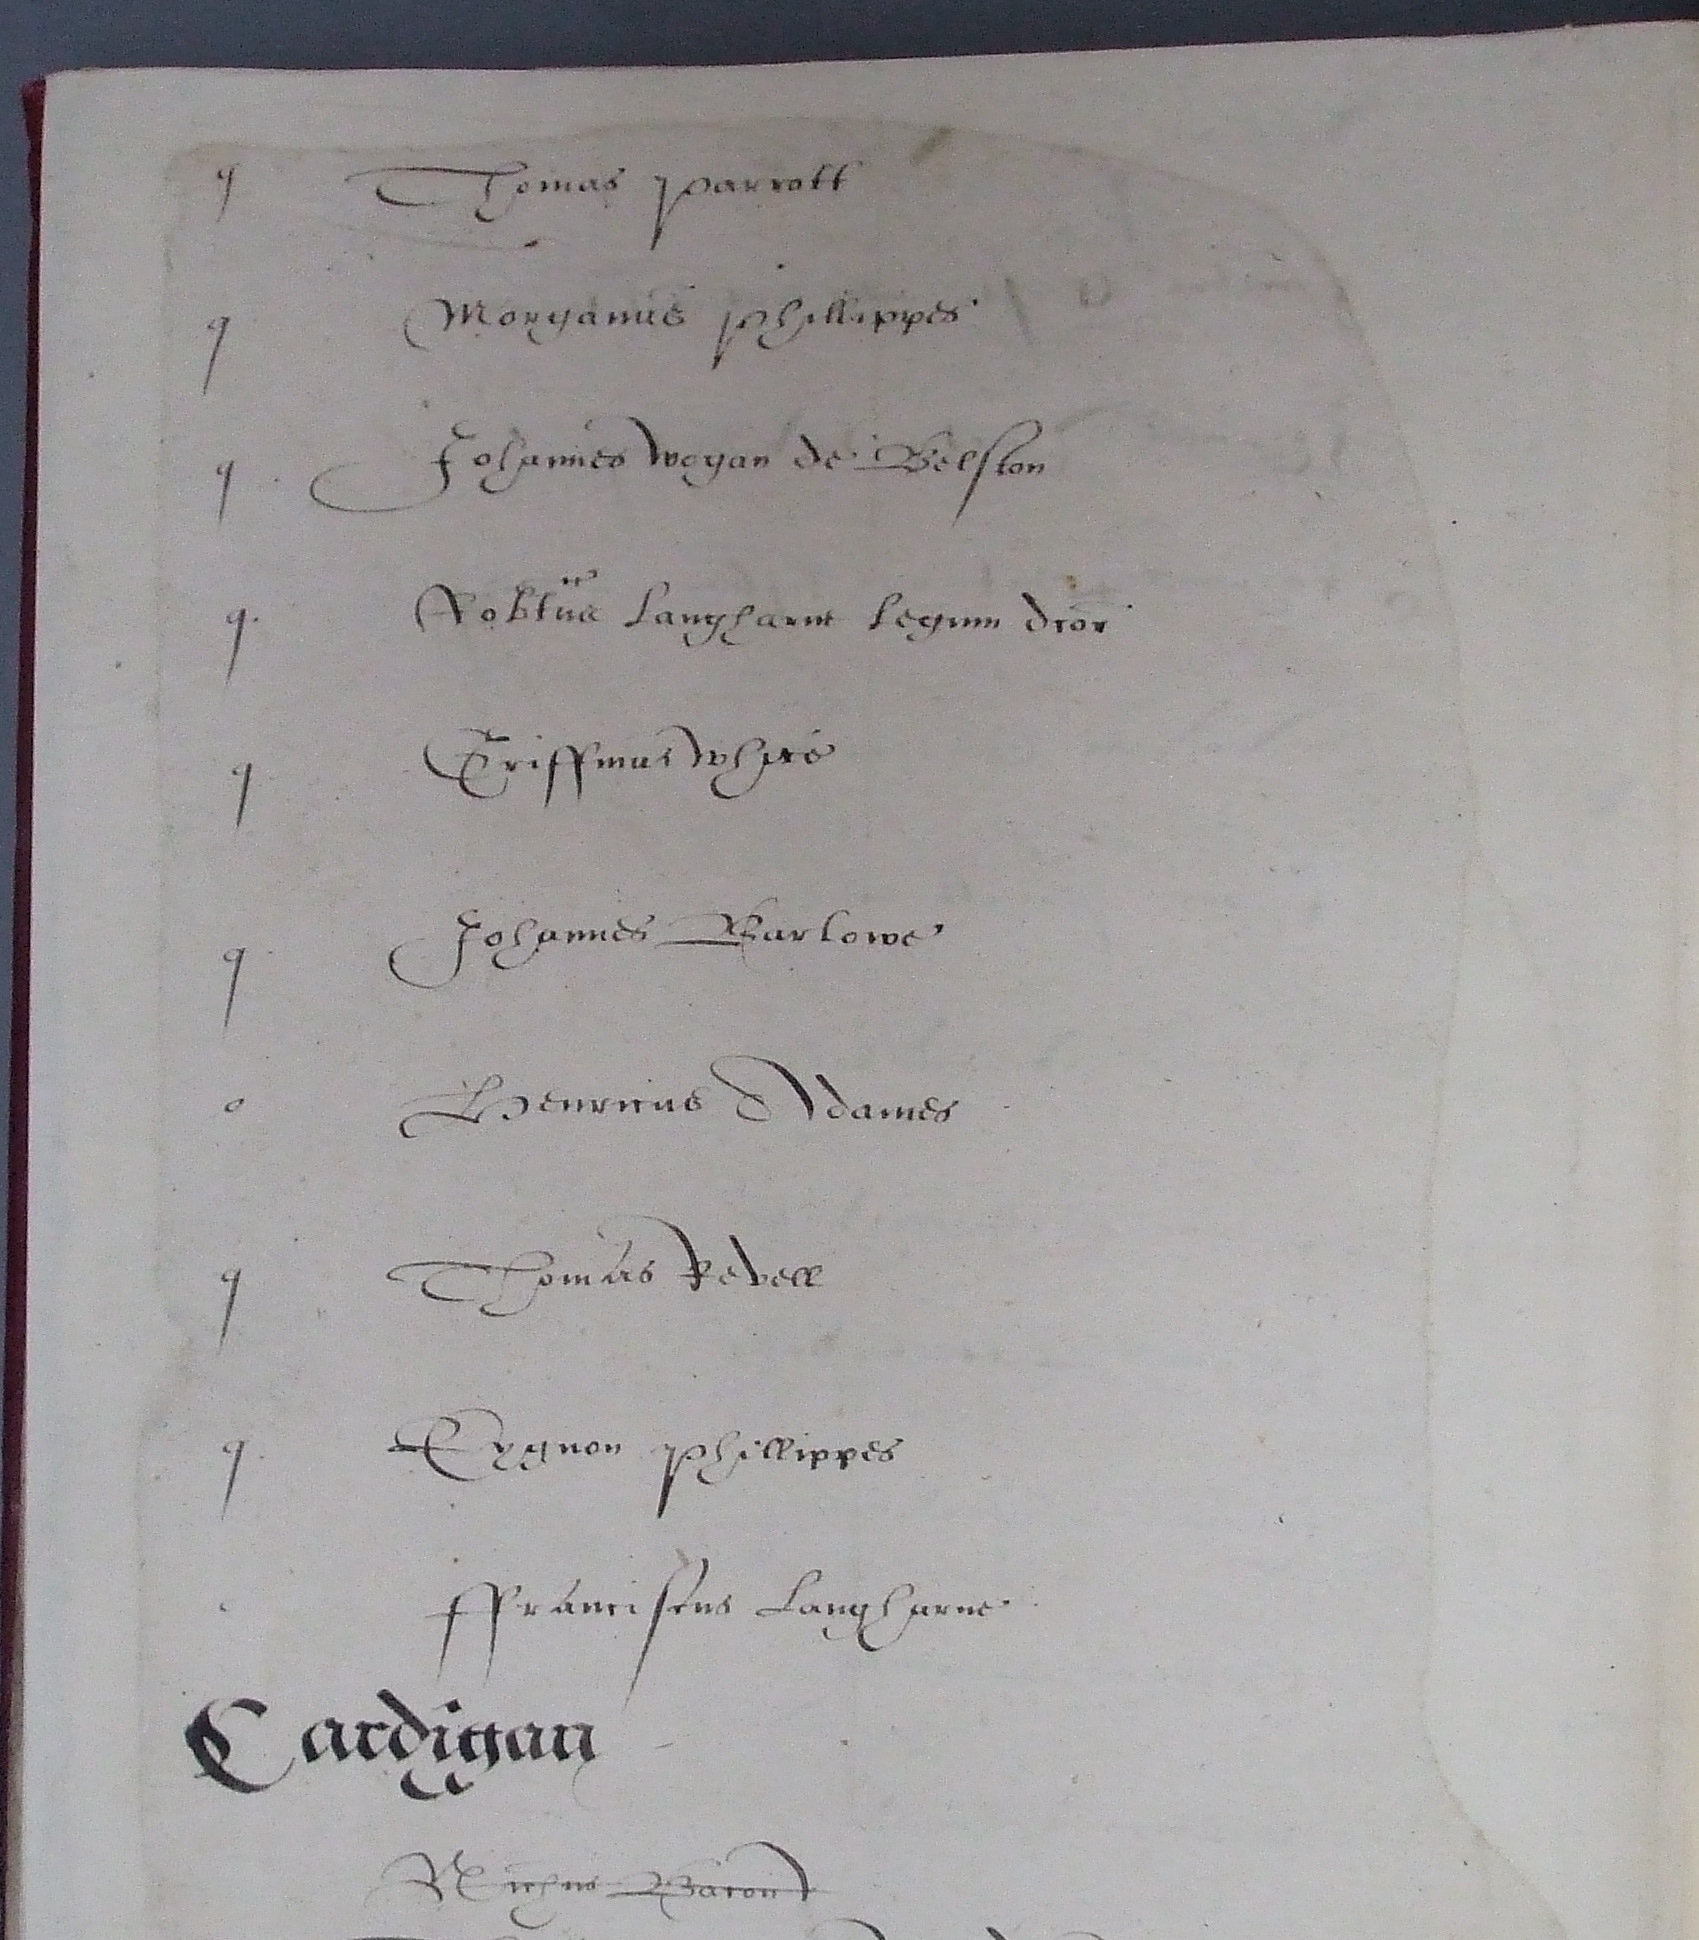 q Thomas Parrott
q Morganus Phillippes
q Johannes Wogan de Belston
q Robtus Langharne legum dcor
q Griffinus White
q Johannes Barlowe
o Henricus Adames
q Thomas Revell
q Eygnon Phillippes
ffranciscus Langharne
Cardigan
Nichus Bacon